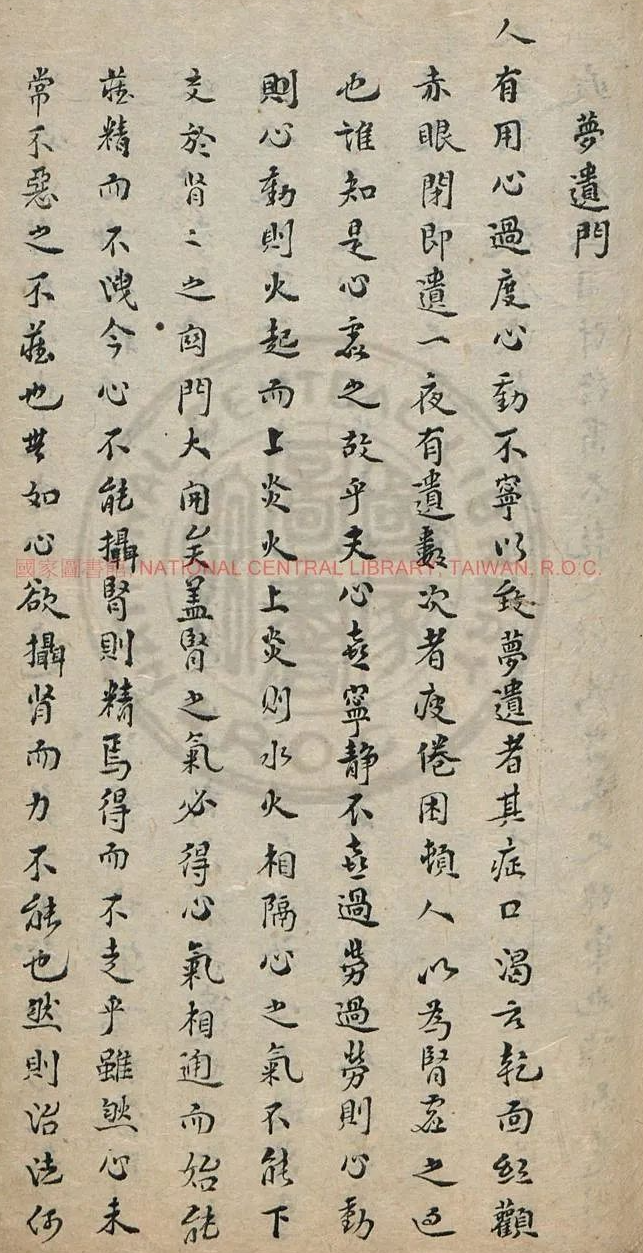 夢遺門
人有用心過度心動不寧以致夢遺者其症口渴舌乾面紅顴
赤眼閉即遺一夜有遺數次者疲倦困頓人以為腎虛之過
也誰知是心虛之故乎夫心喜寧靜不喜過勞過勞則心動
則心動則火起而上炎火上炎則水火相隔心之氣不能下
交於肾〻之関門大開矣盖腎之氣必得心氣相通而始能
藏精而不洩今心不能攝腎則精焉得而不走乎雖然心未
常不惡之不藏也無如心欲攝肾而力不能也然則治法何
國家圖書館, NATIONAL CENTRAL LIBRARY, TAIWAN, R.O.C.